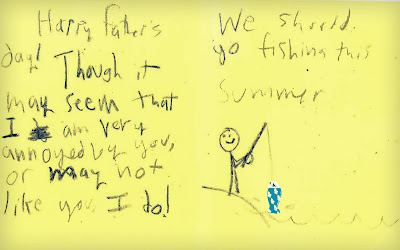 Happy Father's
day! Though it
may seem that
I am very
annoyed by you,
or may not
like you, I do!
We should
go fishing this
summer